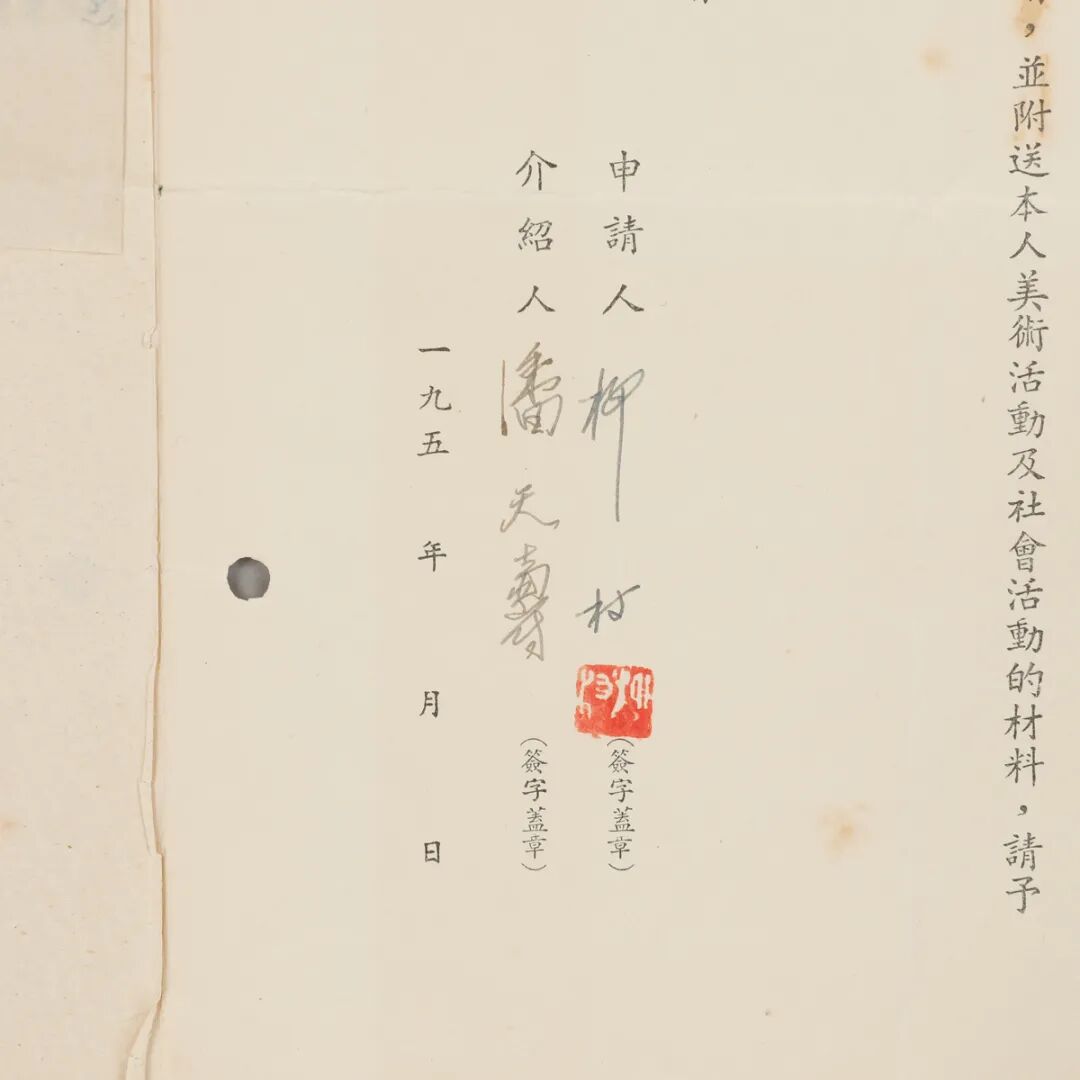 ，並附送本人美術活動及社會活動的材料，請予
申請人 柳村 （簽字蓋章）
柳村
介紹人 潘天壽 （簽字蓋章）
一九五 年 月 日